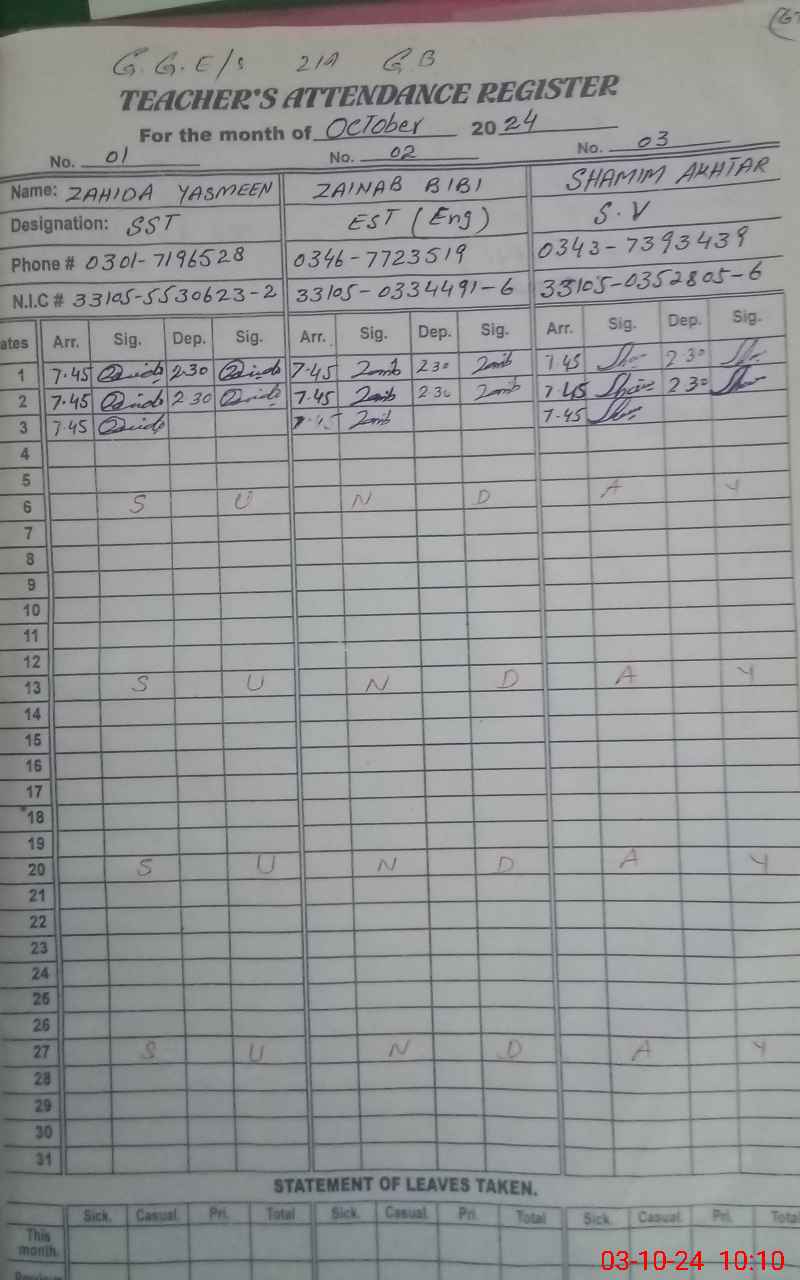 G.G.E/s 219 GB
TEACHER'S ATTENDANCE REGISTER
For the month of October 2024
No. 01 No. 02 No. 03
Name: ZAHIDA YASMEEN ZAINAB BIBI SHAMIM AKHTAR
Designation: SST EST (Eng) S.V
Phone # 0301-7196528 0346-7723519 0343-7393439
N.I.C # 33105-5530623-2 33105-0334491-6 33105-0352805-6
ates Arr. Sig. Dep. Sig. Arr. Sig. Dep. Sig. Arr. Sig. Dep. Sig.
1 7.45 2.30 7.45 2.30 7.45 2.30
2 7.45 2.30 7.45 2.30 7.45 2.30
3 7.45 7.45 7.45
4
5
6 S U N D A Y
7
8
9
10
11
12
13 S U N D A Y
14
15
16
17
18
19
20 S U N D A Y
21
22
23
24
25
26
27 S U N D A Y
28
29
30
31
STATEMENT OF LEAVES TAKEN.
Sick. Casual Pri. Total Sick. Casual Pri. Total Sick. Casual Pri. Total
This month.
03-10-24 10:10